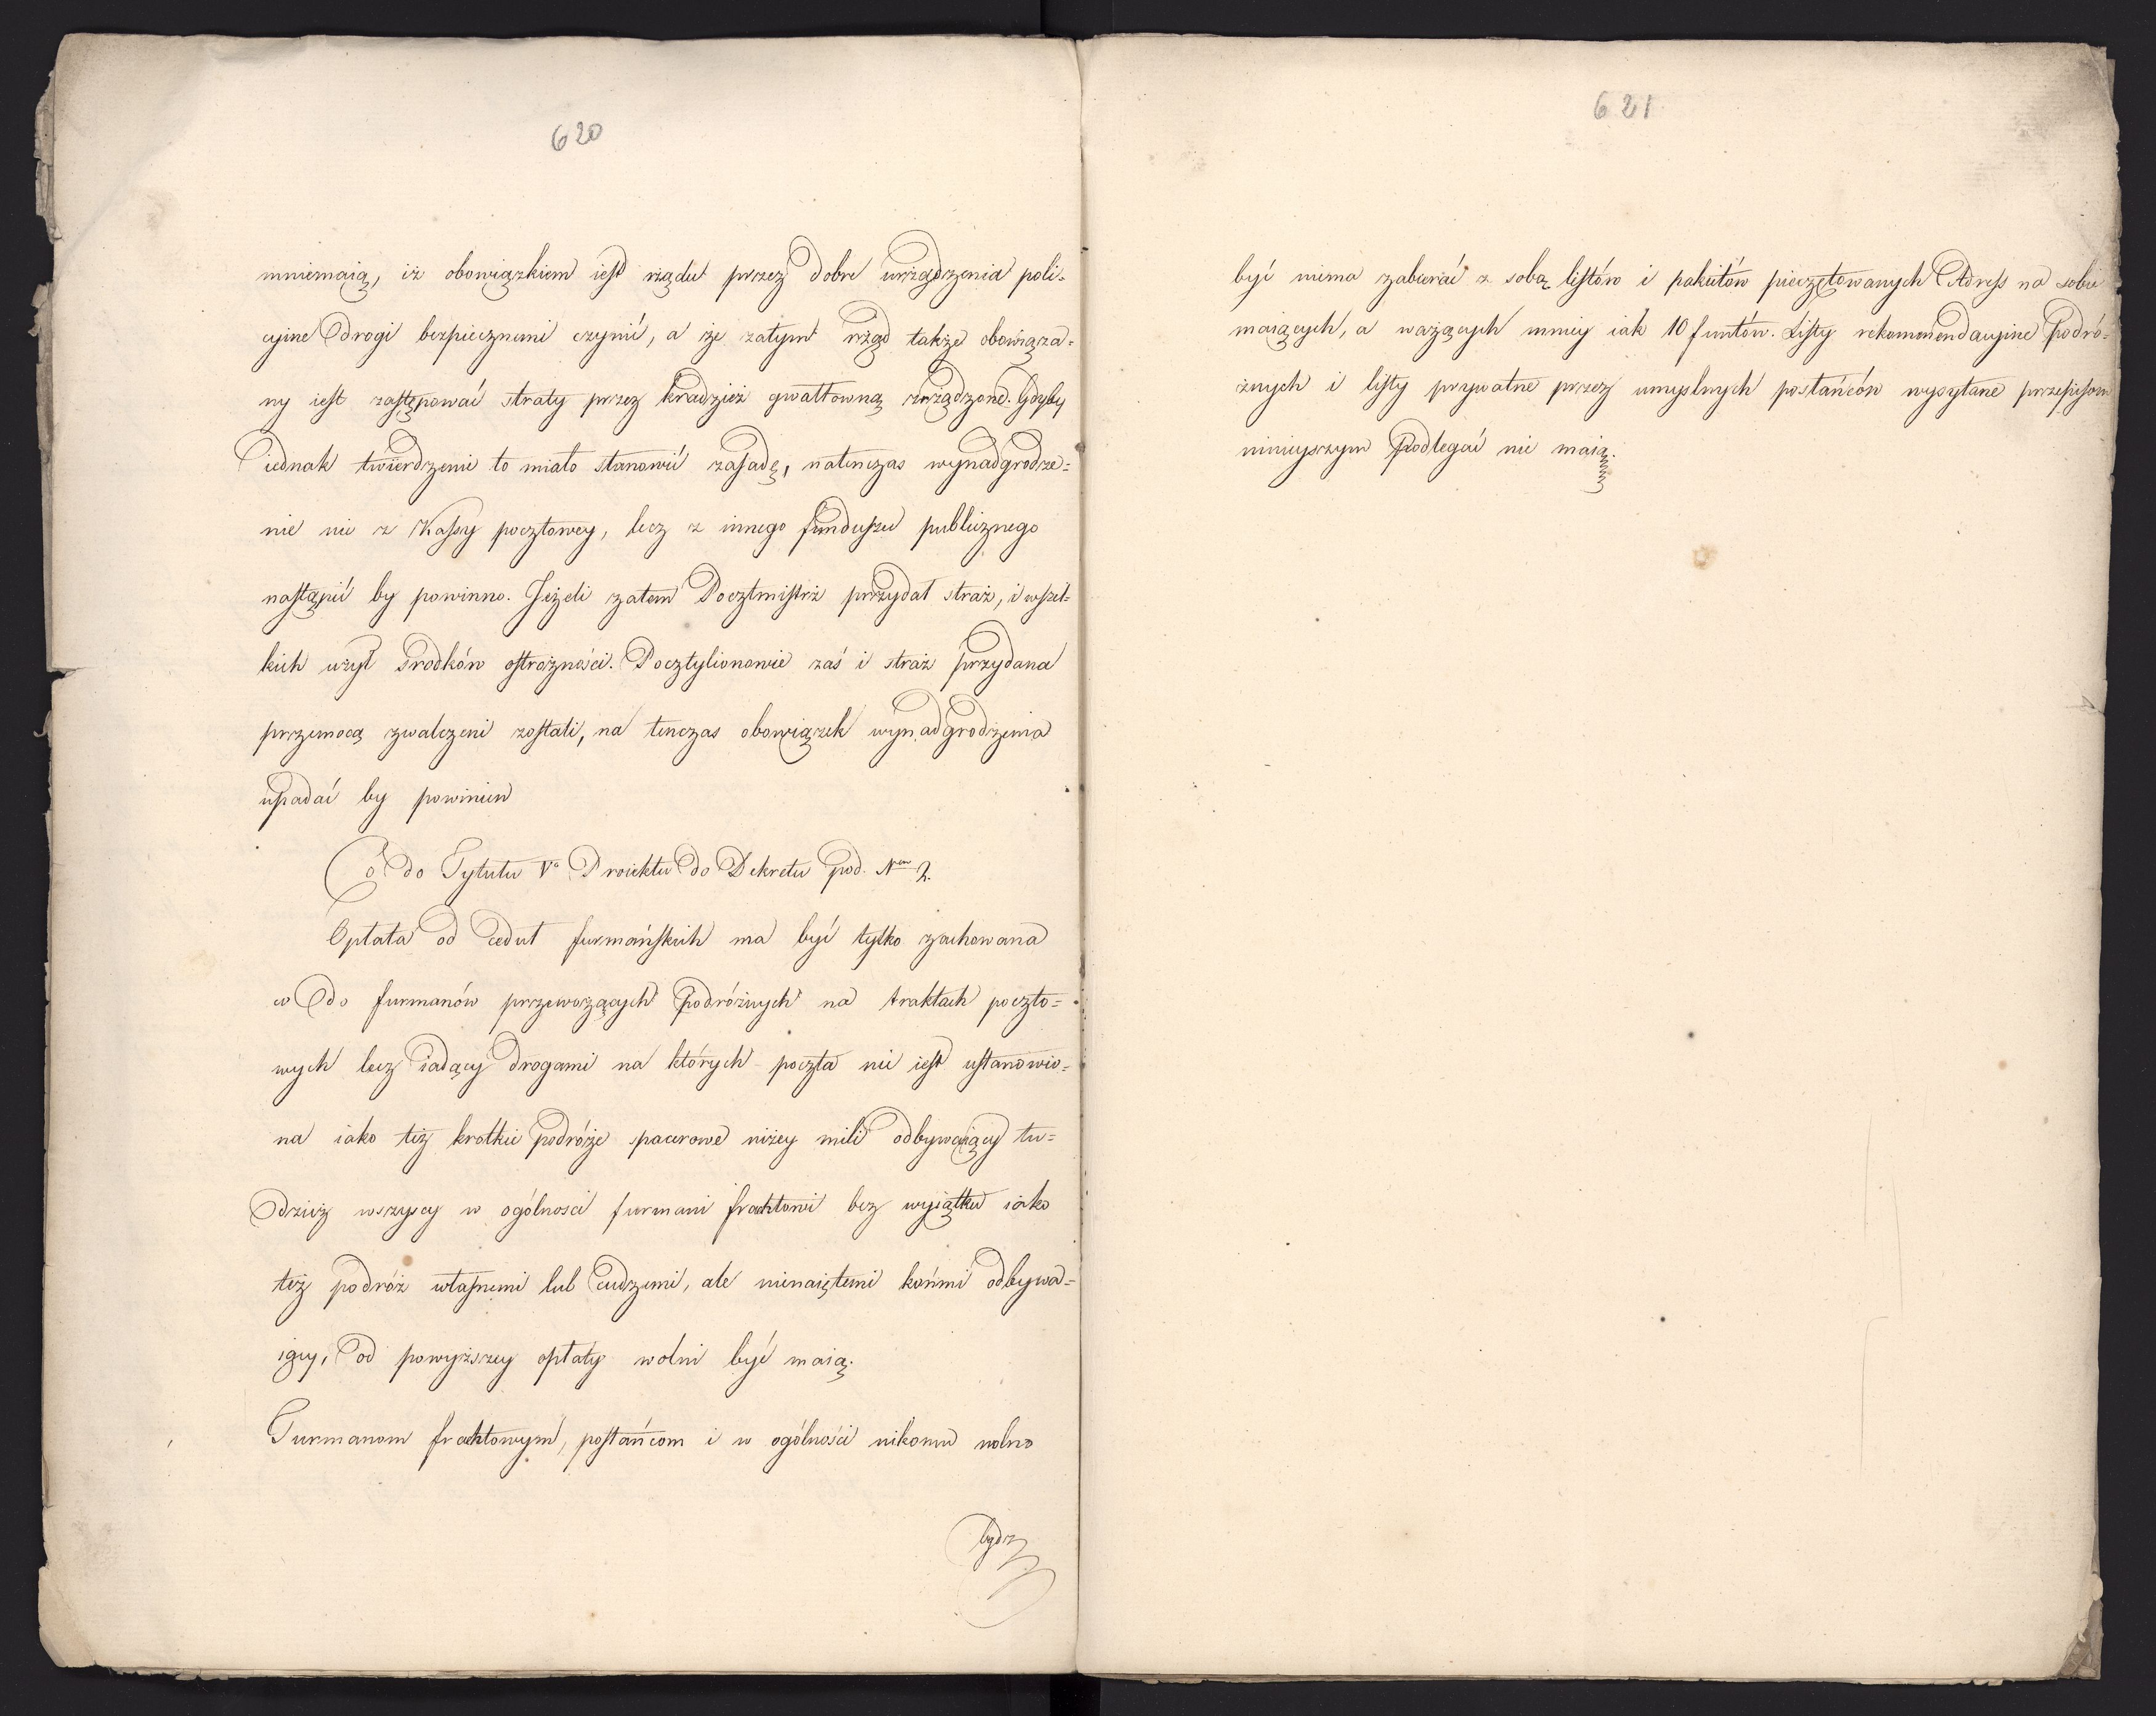 620
mniemaią, iż obowiązkiem iest rządu przez dobre urządzenia poli=
cyine drogi bezpiecznemi czynić, a że zatym rząd także obowiąza=
ny iest zastępować straty przez kradzież gwałtowną zrządzone. Gdyby
iednak twierdzenie to miało stanowić zasadę, natenczas wynadgrodze=
nie nie z Kassy pocztowey, lecz z innego funduszu publicznego
nastąpić by powinno. Jeżeli zatem Pocztmistrz przydał straż, i wszel=
kich użył srodków ostrożności. Pocztylionowie zaś i straż przydana
przemocą zwalczeni zostali, na tenczas obowiązek wynadgrodzenia
upadać by powinien
Co do Tytułu V° Proiektu do Dekretu pod Nem 2.
Opłata od cedut furmańskich ma być tylko zachowana
co do furmanów przewożących podróżnych na traktach poczto=
wych lecz iadący drogami na których poczta nie iest ustanowio=
na iako też krotkie podróże spacerowe niżey mili odbywaiący tu=
dzież wszyscy w ogólnosci furmani frachtowi bez wyiątku iako
też podróż własnemi lub cudzemi, ale nienaiętemi końmi odbywa=
iący, od powyższey opłaty wolni być maią.
Furmanom frachtowym, posłańcom i w ogólności nikomu wolno
621
być niema zabierać z sobą listów i pakietów pieczętowanych Adress na sobie
maiących, a ważących mniey iak 10 funtów. Listy rekomendacyine podró=
żnych i listy prywatne przez umyslnych posłańców wysyłane przepisom
ninieyszym podlegać nie maią.